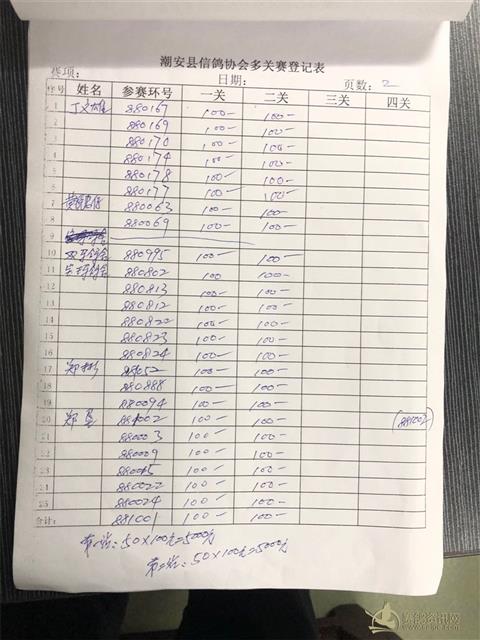 潮安县信鸽协会多关赛登记表
类项： 日期： 页数：2
序号 姓名 参赛环号 一关 二关 三关 四关
1 丁义雄 880167 100- 100-
2 880169 100- 100-
3 880170 100- 100-
4 880174 100- 100-
5 880178 100- 100-
6 880177 100- 100-
7 880063 100- 100-
8 880069 100- 100-
9
10 880995 100- 100-
11 880802 100 100-
12 880813 100- 100-
13 880812 100- 100-
14 880820 100- 100-
15 880823 100- 100-
16 880824 100- 100-
17 郑彬 88052 100- 100-
18 880888 100- 100-
19 880094 100- 100-
20 郑 881002 100- 100- 881002
21 880003 100- 100-
22 880009 100- 100-
23 880015 100- 100-
24 880022 100- 100-
25 880024 100- 100-
合计： 881001 100- 100-
第一关：50×100元=5000元
第二关：50×100元=5000元
赛鸽资讯网